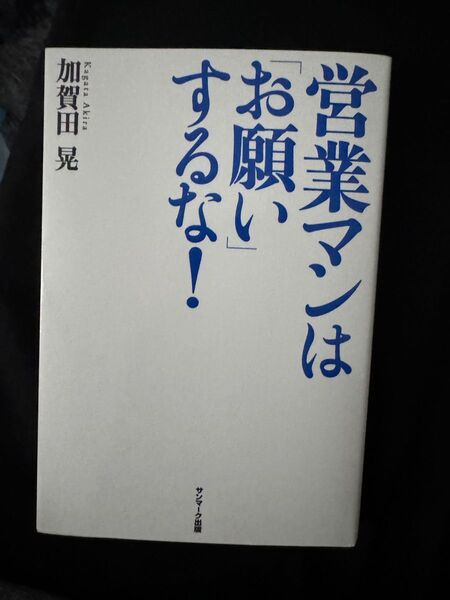 営業マンは
「お願い」
するな！
Kagata Akira
加賀田 晃
サンマーク出版